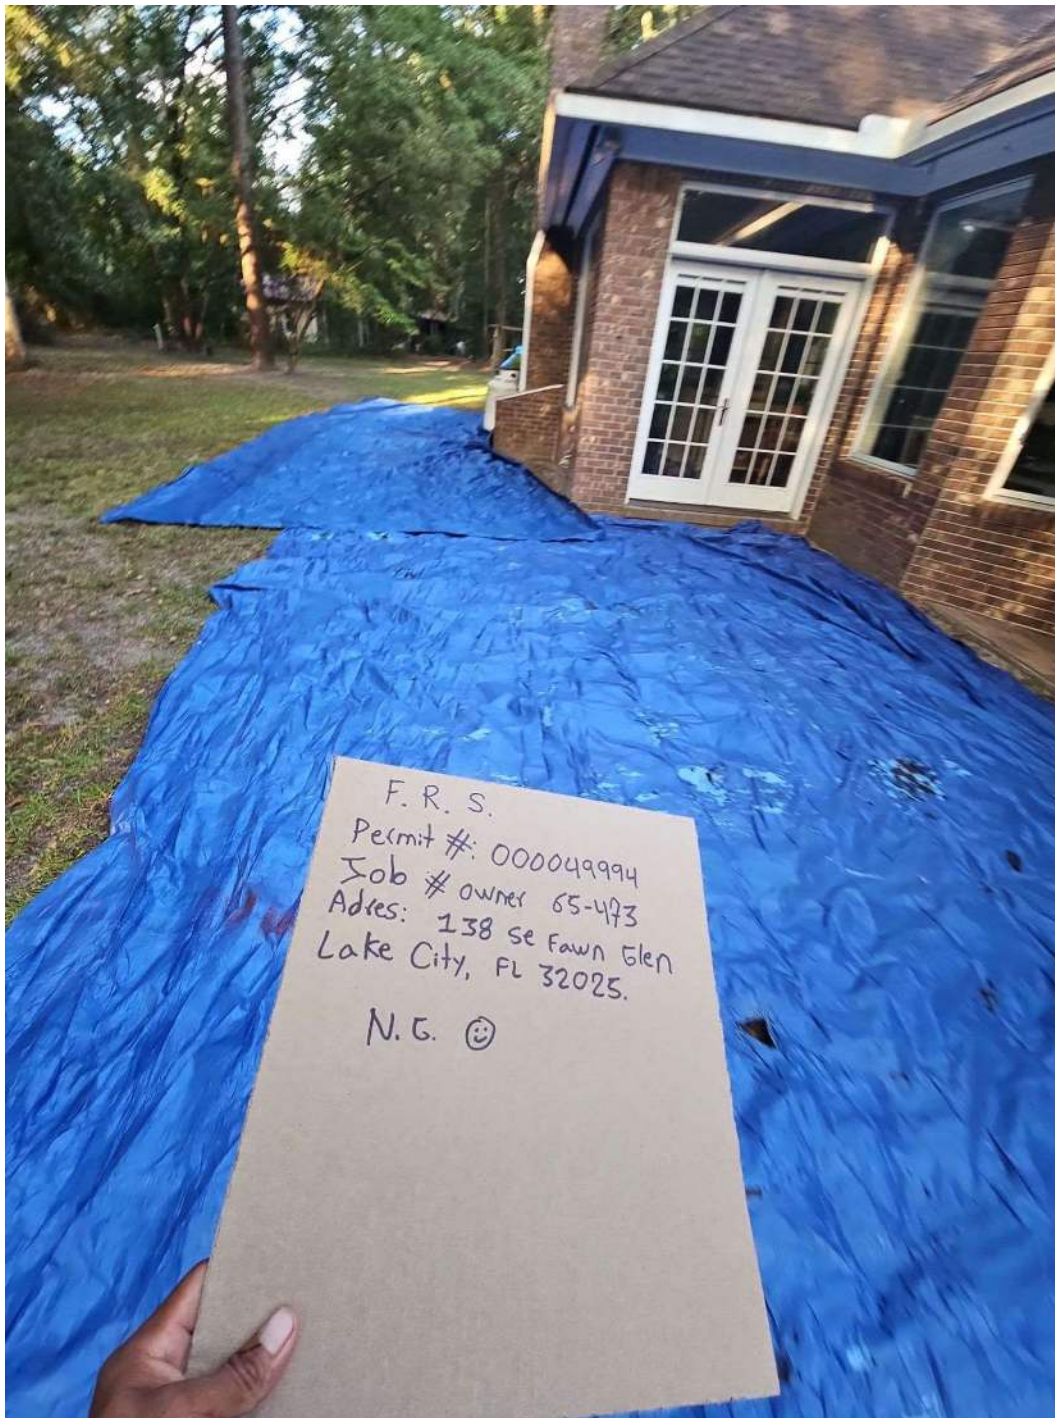 F. R. S.
Permit #: 000049994
Job # owner 65-473
Adres: 138 se Fawn Glen
Lake City, FL 32025.
N. G. ☺